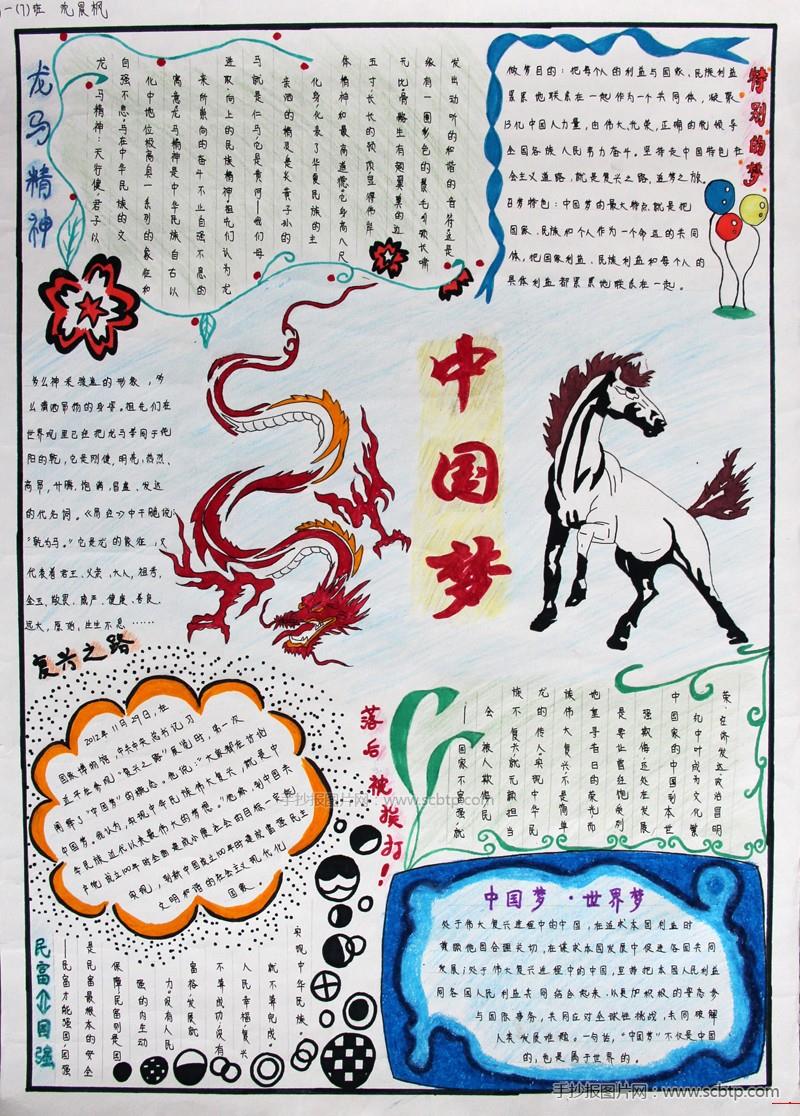 一(7)班 龙晨枫
龙马精神
龙马精神,天行健,君子以
自强不息。马在中华民族的文
化中地位极高,具一系列的象征和
寓意。龙马精神是中华民族自古以
来所崇尚的奋斗不止自强不息的
进取、向上的民族精神。祖先们认为龙
马就是仁马,它是黄河——我们母
亲河的精灵是炎黄子孙的
化身,代表了华夏民族的主
体精神和最高道德。它身高八尺
五寸,长长的颈项,显得伟岸
无比,骨骼生有翅翼,翼的边
缘有一圈彩色的鬃毛,引颈长啸
发出动听的和谐的音符。这是
多么神采骏逸的形象,多
么潇洒昂扬的身姿。祖先们在
世界观里已经把龙马等同于纯
阳的乾,它是刚健,明亮,热烈,
高昂,升腾,饱满,昌盛,发达
的代名词。《易经》中干脆说:
“乾为马。”它是龙的象征,又
代表着君王,父亲,大人,祖考,
金玉,敬畏,威严,健康,善良,
远大,原始,生生不息……
特别的梦
做梦目的:把每个人的利益与国家、民族利益
紧紧地联系在一起作为一个共同体,凝聚
13亿中国人力量,由伟大、光荣、正确的党领导
全国各族人民努力奋斗。坚持走中国特色社
会主义道路,就是复兴之路,追梦之旅。
音梦特色:中国梦的最大特点就是把
国家、民族和个人作为一个命运的共同
体,把国家利益、民族利益和每个人的
具体利益都紧紧地联系在一起。
中国梦
复兴之路
2012年11月29日,在
国家博物馆,中共中央总书记习
近平在参观“复兴之路”展览时,第一次
阐释了“中国梦”的概念。他说:“大家都在讨论
中国梦。我认为,实现中华民族伟大复兴,就是中
华民族近代以来最伟大的梦想。”他称,到中国共
产党成立100年时全面建成小康社会的目标一定能
实现,到新中国成立100年时建成富强民主
文明和谐的社会主义现代化
国家。
落后就挨打!
——国家不富强就
会被人欺侮,民
族不复兴,就无颜担当
龙的传人。实现中华民
族伟大复兴,不是简单
地重寻昔日的荣光,而
是要让曾经饱受列
强欺侮、远处在发展
中国家的中国到本世
纪中叶成为文化繁
荣、经济发达、政治昌明
民富⇕国强
——民富才能强国,国强
是民富最根本的安全
保障,民富则是国
强的内生动
力。没有人民
富裕,发展就
不算成功;没有
人民幸福,复兴
就不算完成。
实现中华民族
中国梦·世界梦
处于伟大复兴进程中的中国,在追求本国利益时
兼顾他国合理关切,在谋求本国发展中促进各国共同
发展;处于伟大复兴进程中的中国,坚持把本国人民利益
同各国人民利益共同结合起来,以更加积极的姿态参
与国际事务,共同应对全球性挑战,共同破解
人类发展难题。一句话,“中国梦”不仅是中国
的,也是属于世界的。
手抄报图片网:www.scbtp.com
手抄报图片网:www.scbtp.com